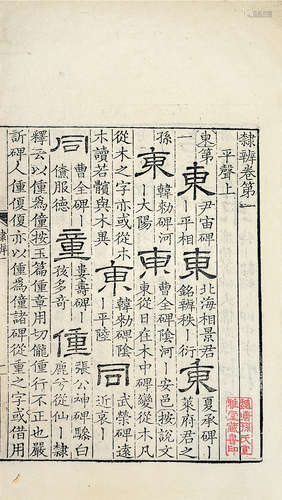 隸辨卷第一
平聲上
東第一
東 尹宙碑—平相 東 北海相景君銘辨秩—衍 東 夏承碑—萊府君之
孫 東 韓勑碑河—大陽 東 曹全碑陰河—安邑按說文東從日在木中碑變從木凡
從木之字亦或從朩朩讀若髕與木異 東 韓勑碑陰—平陸 同 武榮碑遠近哀—
同 曹全碑—僚服德 童 婁壽碑—孩多奇 僮 張公神碑驂白鹿兮從仙—隸
釋云以僮為僮按玉篇僮章用切儱僮行不正也
訴碑人僮復以僮為僮諸碑從童之字或借用